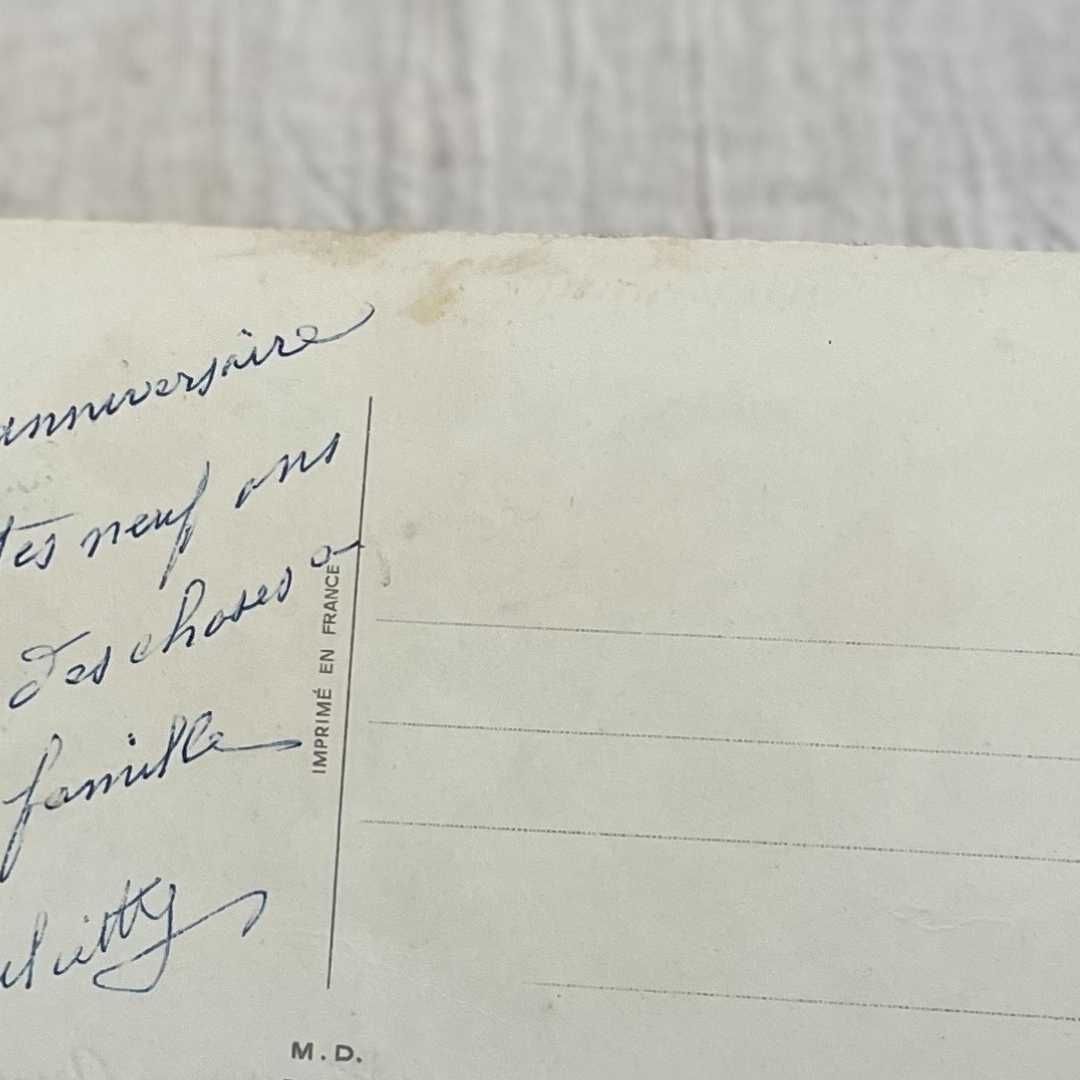 anniversaire
tes neuf ans
des choses à
famille
IMPRIMÉ EN FRANCE
M.D.